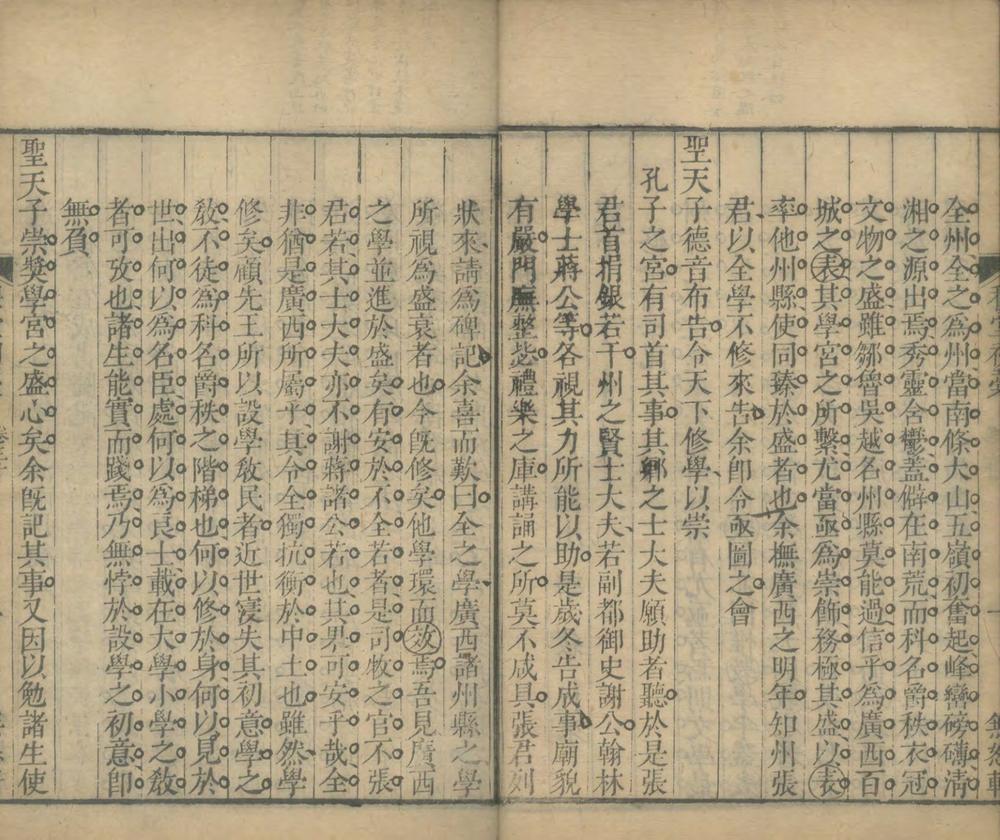 全州全之爲州當南條大山五嶺初奮起峰巒磅礡淸
湘之源出焉秀靈含鬱蓋僻在南荒而科名爵秩衣冠
文物之盛雖鄒魯吳越名州縣莫能過信乎爲廣西百
城之表其學宮之所繫尤當亟爲崇飾務極其盛以表
率他州縣使同臻於盛者也余撫廣西之明年知州張
君以全學不修來告余卽令亟圖之會
聖天子德音布告令天下修學以崇
孔子之宮有司首其事其鄕之士大夫願助者聽於是張
君首捐銀若干州之賢士大夫若副都御史謝公翰林
學士蔣公等各視其力所能以助是歲冬告成事廟貌
有嚴門廡整毖禮樂之庫講誦之所莫不咸具張君列
狀來請爲碑記余喜而歎曰全之學廣西諸州縣之學
所視爲盛衰者也今旣修矣他學環而效焉吾見廣西
之學並進於盛矣有安於不全若者是司敎之官不張
君若其士大夫亦不謝蔣諸公若也其果可安乎哉全
非猶是廣西所屬乎其令全獨抗衡於中土也雖然學
修矣顧先王所以設學敎民者近世寖失其初意學之
敎不徒爲科名爵秩之階梯也何以修於身何以見於
世出何以爲名臣處何以爲良士載在大學小學之敎
者可攷也諸生能實而踐焉乃無悖於設學之初意卽
無負
聖天子崇獎學宮之盛心矣余旣記其事又因以勉諸生使